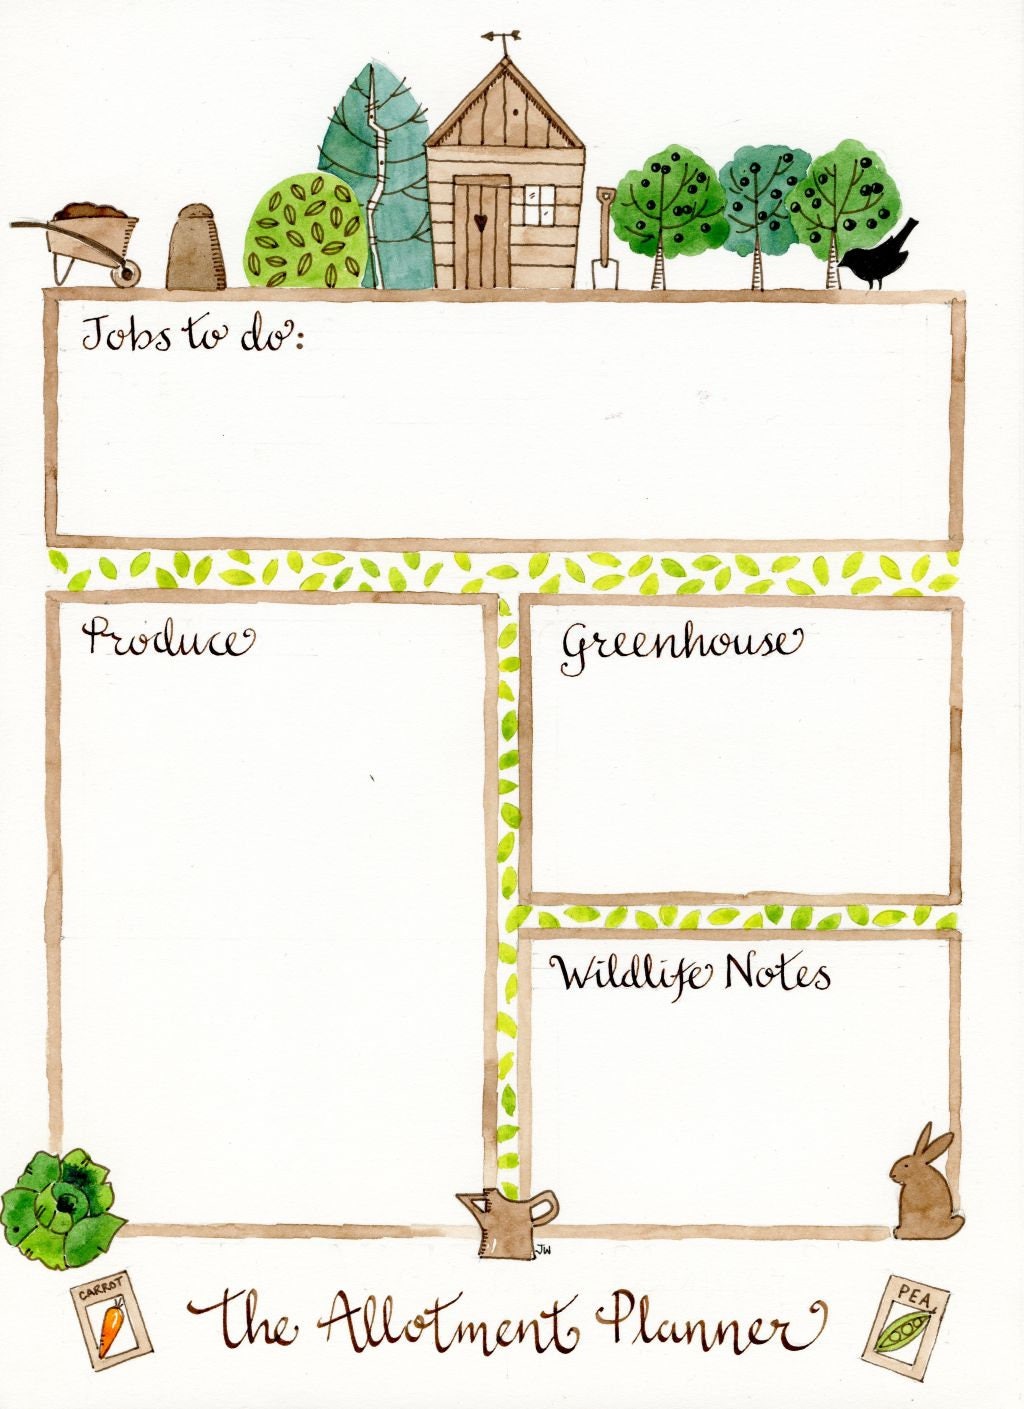 Jobs to do:
Produce
Greenhouse
Wildlife Notes
JW
CARROT
The Allotment Planner
PEA